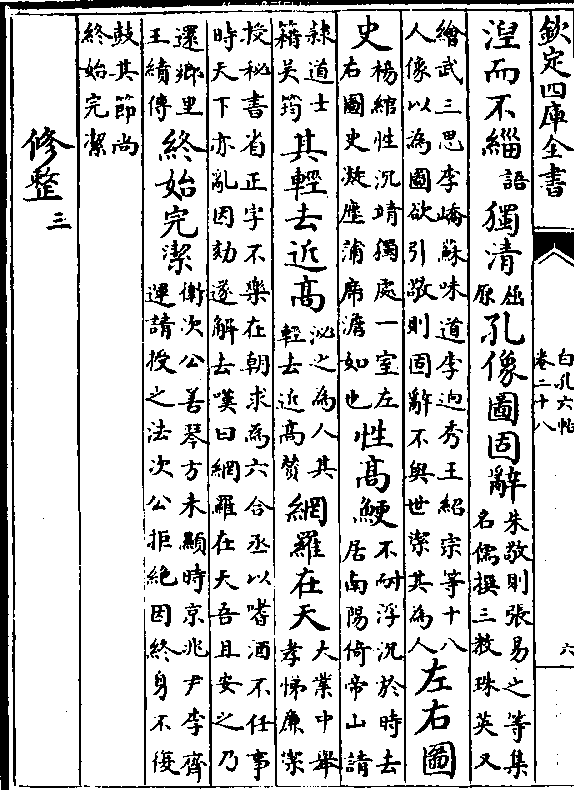 欽定四庫全書
白孔六帖
卷二十八
六
涅而不緇 語 獨清 屈原 孔像圖固辭 朱敬則張易之等集名儒撰三教珠英又
繪武三思李嶠蘇味道李迥秀王紹宗等十八人像以為圖欲引敬則固辭不與世潔其為人 左右圖
史 楊綰性沉靖獨處一室左右圖史凝塵滿席澹如也 性高鯁 不耐浮沉於時去居南陽倚帝山請
隷道士籍吳筠 其輕去近高 泌之為人其輕去近高贊 網羅在天 大業中舉孝悌廉潔
授秘書省正字不樂在朝求為六合丞以嗜酒不任事時天下亦亂因劾遂解去嘆曰網羅在天吾且安之乃
還鄉里王績傳 終始完潔 衛次公善琴方未顯時京兆尹李齊運請授之法次公拒絶因終身不復
鼓其節尚終始完潔
修整 三